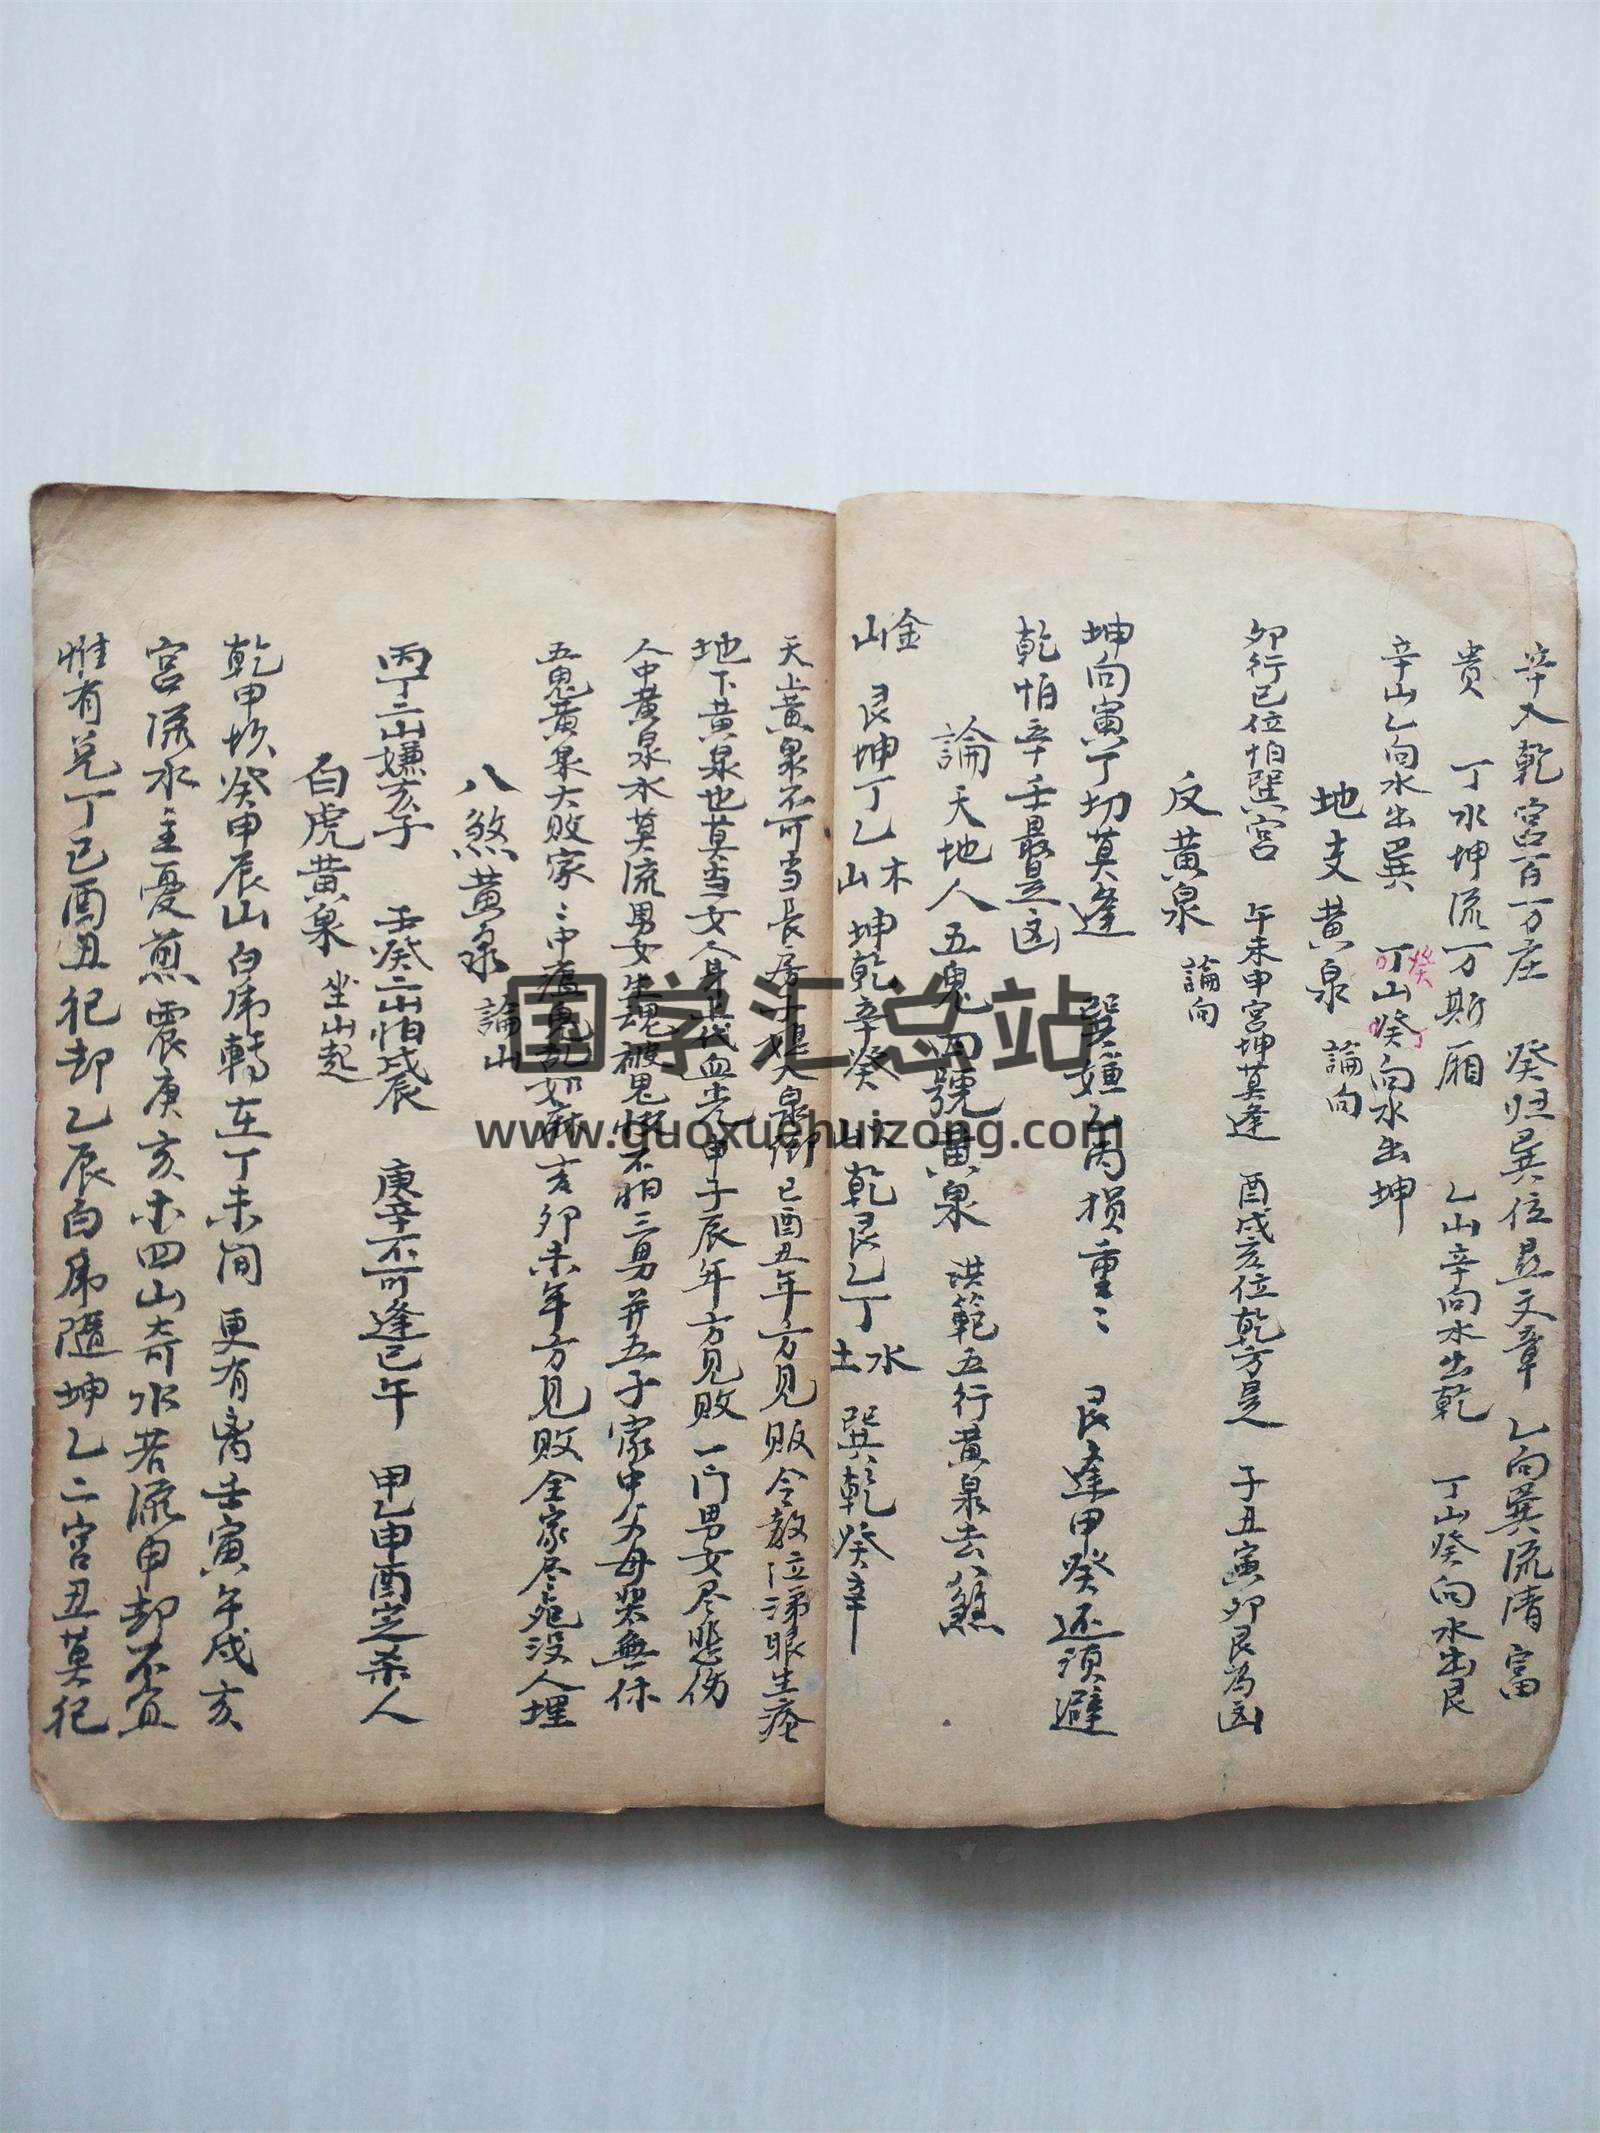 辛入乾宮百万庄 癸归巽位显文章 乙向巽流清富
贵 丁水坤流万斯厢 乙山辛向水出乾 丁山癸向水出艮
辛山乙向水出巽 丁山癸向水出坤
癸
丁
地支黄泉 論向
卯行巳位怕巽宮 午未申宮坤莫逢 酉戌亥位乾方是 子丑寅卯艮為凶
反黄泉 論向
坤向寅丁切莫逢 巽嫌乙丙损重重 艮逢甲癸还须避
乾怕辛壬最是凶
論天地人五鬼四號黄泉 洪範五行黄泉去八煞
金山 艮坤丁乙 木山 坤乾辛癸 火山 乾艮乙丁 水土 巽乾癸辛
天上黄泉不可当長房 巳酉丑年方見败 令教泣涕眼生瘡
地下黄泉也莫当女人身 血 申子辰年方見败 一门男女尽悲伤
人中黄泉水莫流男女生魂被鬼 不怕三男并五子家中父母哭無休
五鬼黄泉大败家 家中瘟鬼乱如麻 亥卯未年方見败 全家尽死没人埋
八煞黄泉 論山
丙丁二山嫌亥子 壬癸二山怕戌辰 庚辛不可逢巳午 甲乙申酉定杀人
白虎黄泉 坐山起
乾甲坎癸申辰山 白虎轉在丁未间 更有离壬寅午戌亥
宮流水主憂煎 震庚亥未四山奇 水若流申却不宜
惟有兑丁巳酉丑犯却乙辰白虎隨 坤乙二宮丑莫犯
国学汇总站
www.guoxuehuizong.com